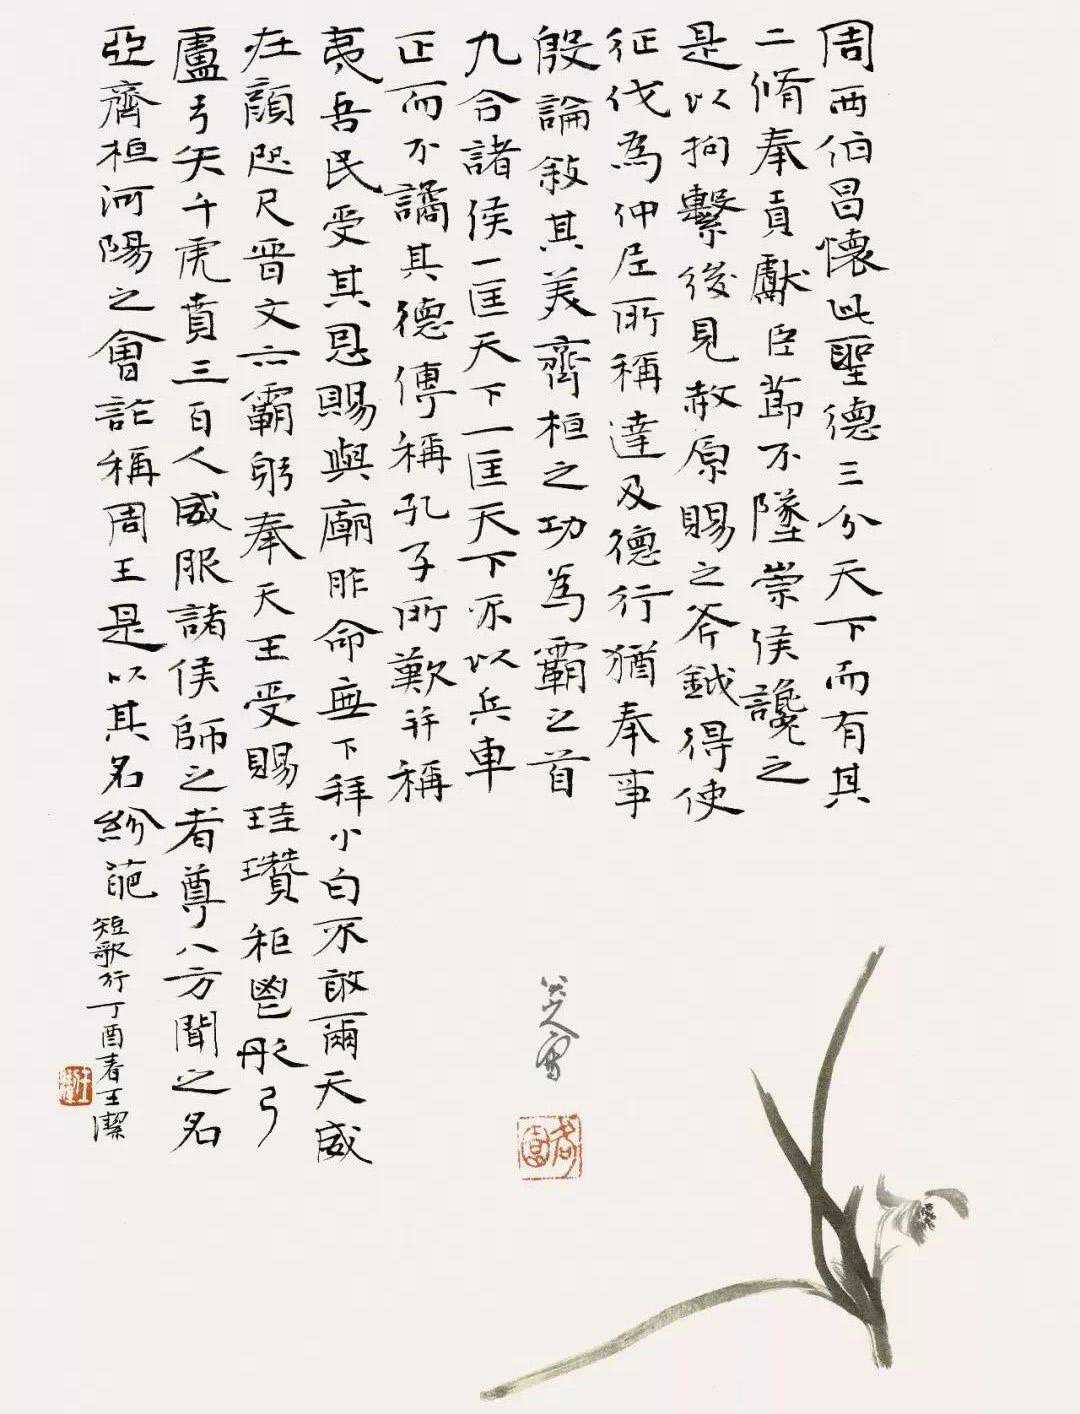 周西伯昌懷此聖德三分天下而有其
二脩奉貢獻臣節不墜崇侯讒之
是以拘繫後見赦原賜之斧鉞得使
征伐為仲尼所稱達及德行猶奉事
殷論敘其美齊桓之功為霸之首
九合諸侯一匡天下一匡天下不以兵車
正而不譎其德傳稱孔子所歎并稱
夷吾民受其恩賜與廟胙命無下拜小白不敢爾天威
在顏咫尺晉文亦霸躬奉天王受賜珪瓚秬鬯彤弓
盧弓矢千虎賁三百人威服諸侯師之者尊八方聞之名
亞齊桓河陽之會詐稱周王是以其名紛葩
短歌行丁酉春王潔
八大山人寫